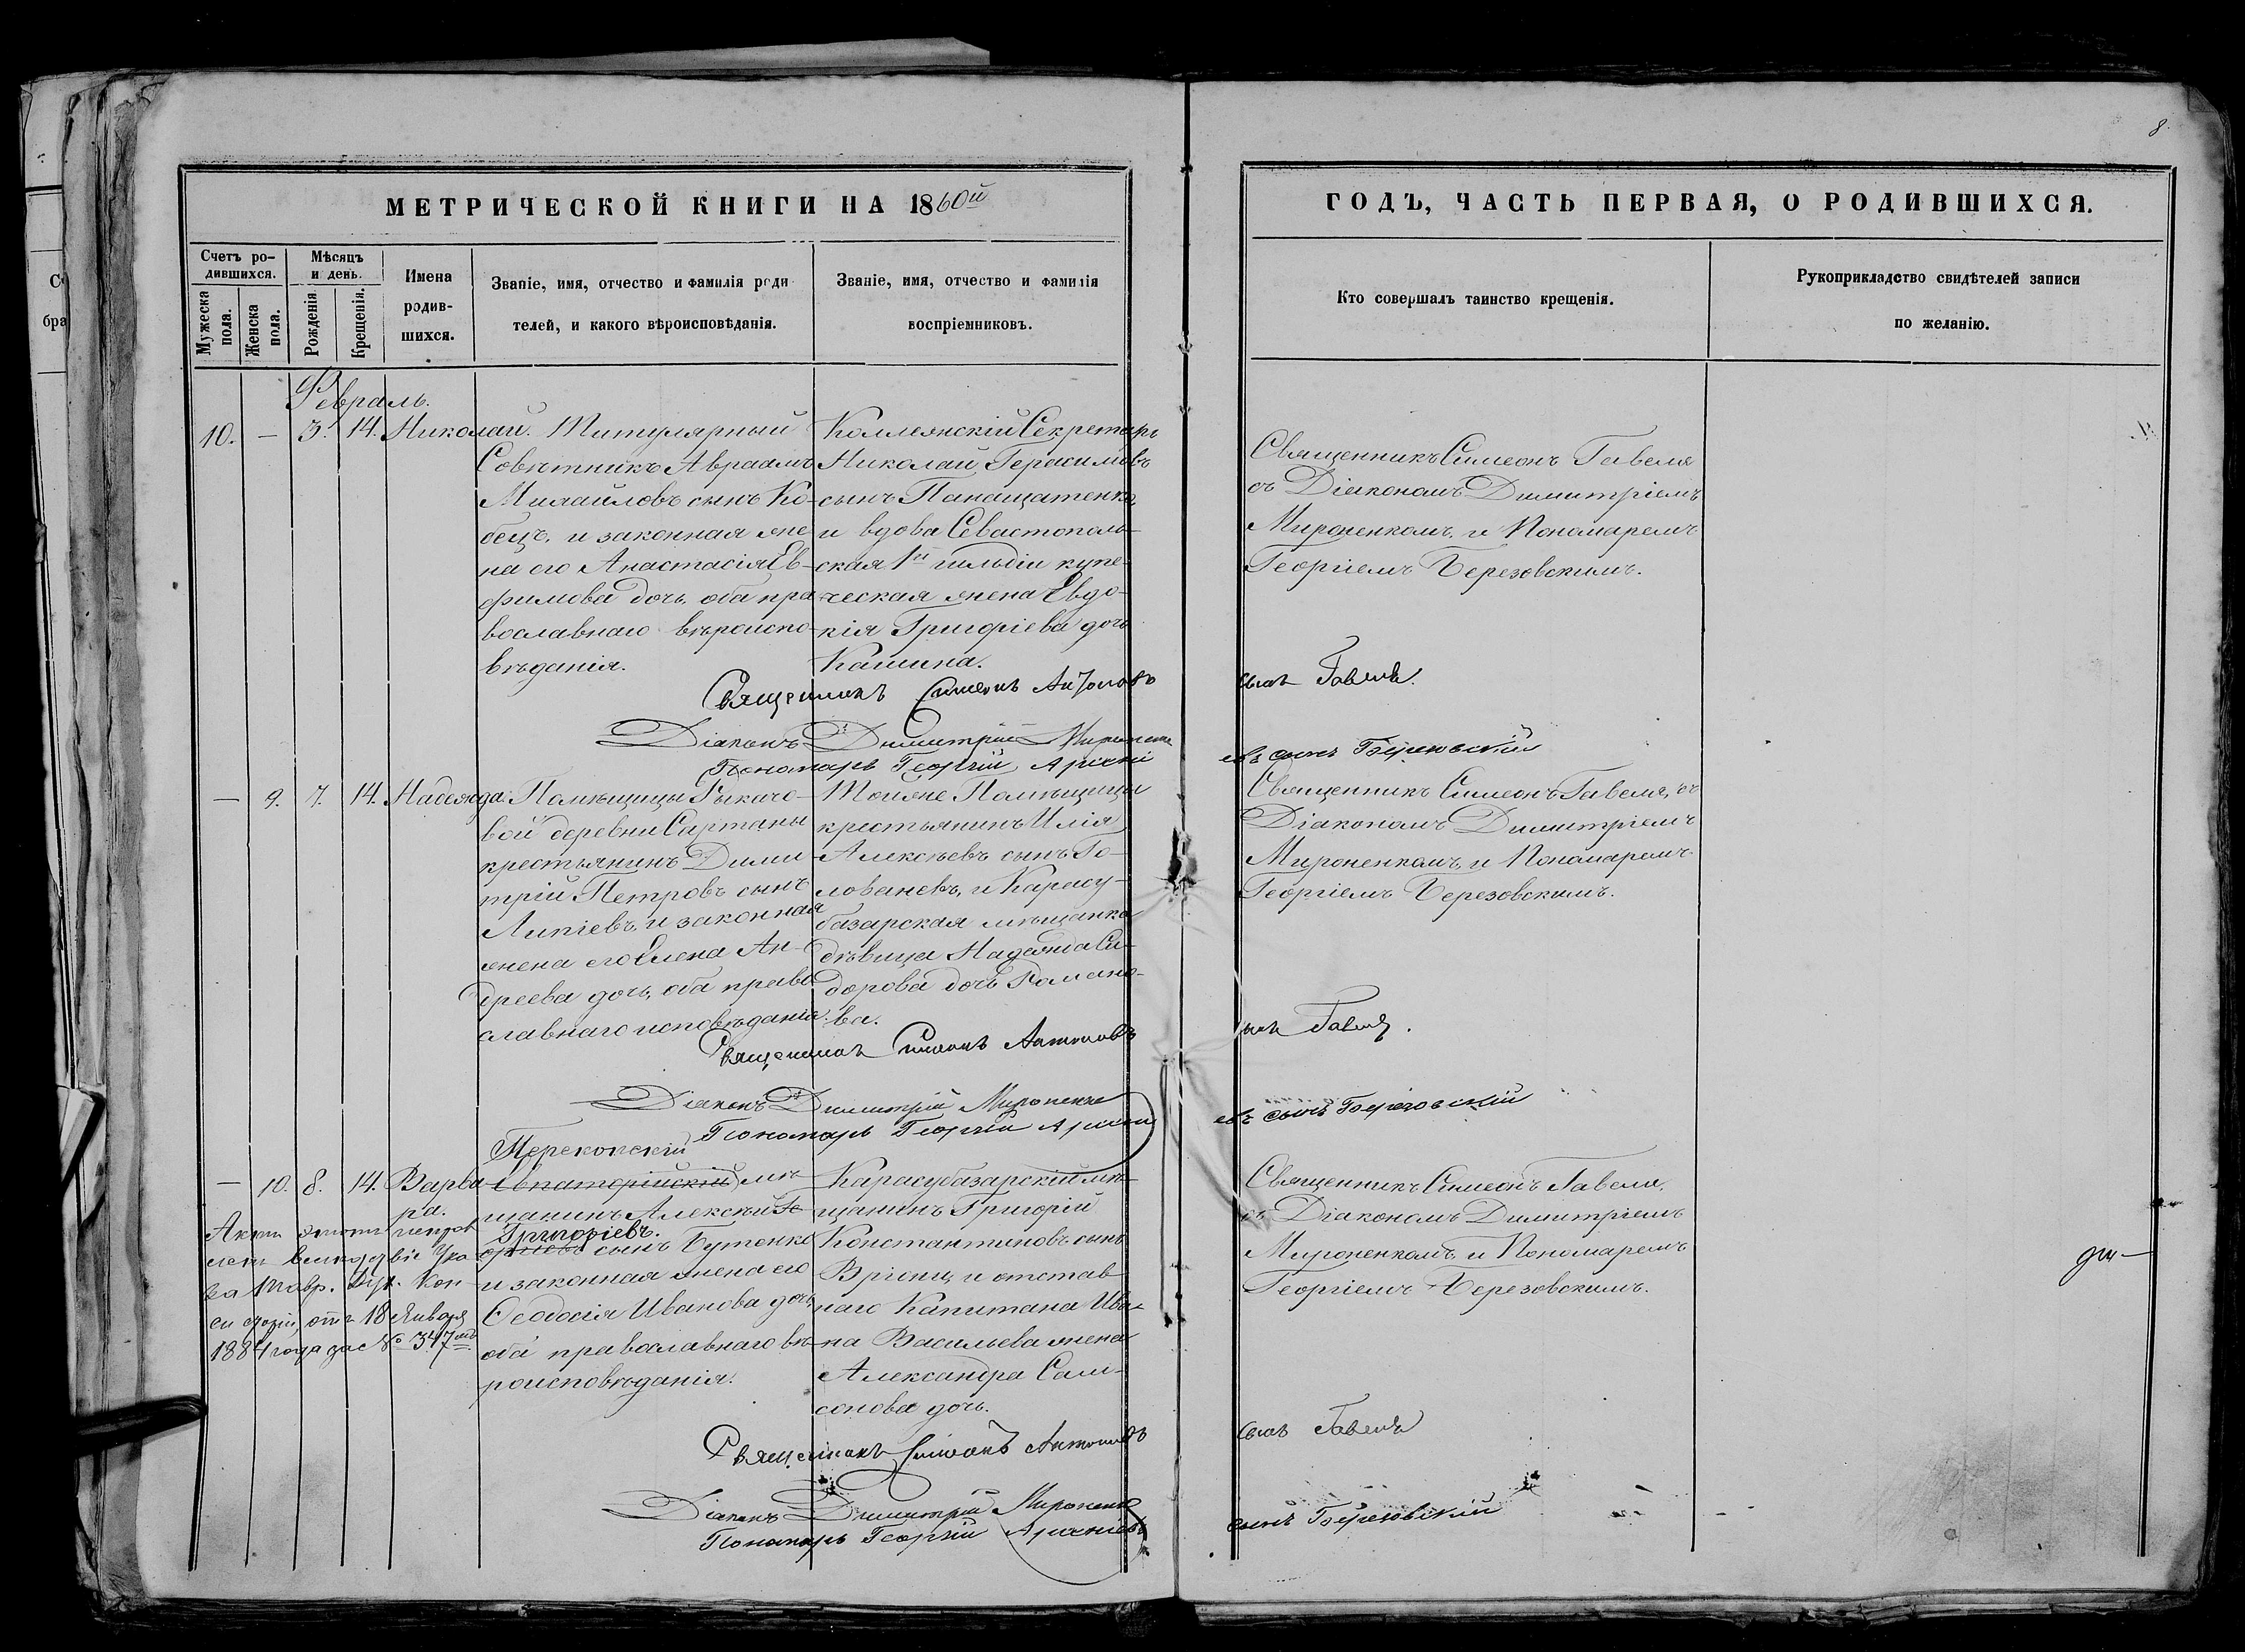 8
МЕТРИЧЕСКОЙ КНИГИ НА 1860й
ГОДЪ, ЧАСТЬ ПЕРВАЯ, О РОДИВШИХСЯ.
Счетъ ро-
дившихся.
Мужеска пола.
Женска пола.
Мѣсяцъ
и день.
Рожденія
Крещенія.
Имена
родив-
шихся.
Званіе, имя, отчество и фамилія роди
телей, и какого вѣроисповѣданія.
Званіе, имя, отчество и фамилія
воспріемниковъ.
Кто совершалъ таинство крещенія.
Рукоприкладство свидѣтелей записи
по желанію.
Февраль.
10. — 3. 14. Николай.
Титулярный
Совѣтникъ Авраамъ
Михайловъ сынъ Ко-
бецъ, и законная же
на его Анастасія Ев-
фимова дочь, оба пра
вославнаго вѣроиспо-
вѣданія.
Коллежскій Секретарь
Николай Герасимовъ
сынъ
и вдова Севастополь-
ская 1й гильдіи купе-
ческая жена Евдо-
кія Григоріева дочь
Кашина.
Священникъ Симеонъ Гавеля
съ Діакономъ Димитріемъ
Мироненкомъ, и Пономаремъ
Георгіемъ Березовскимъ.
Священникъ Симеонъ Антоновъ
сынъ Гавеля.
Діаконъ Димитрій Мироненко
Пономарь Георгій Арсені
евъ сынъ Березовскій
— 9. 7. 14. Надежда.
Помѣщицы Рыкачо-
вой деревни Сартаны
крестьянинъ Дими
трій Петровъ сынъ
Липіевъ, и законная
жена его Елена Ан-
дреева дочь, оба право
славнаго исповѣданія.
Тойже Помѣщицы
крестьянинъ Илія
Алексѣевъ сынъ Го-
лованевъ, и Карасу-
базарская мѣщанка
дѣвица Надежда Си-
дорова дочь Романо-
ва.
Священникъ Симеонъ Гавеля, съ
Діакономъ Димитріемъ
Мироненкомъ, и Пономаремъ
Георгіемъ Березовскимъ.
Священникъ Симеонъ Антоновъ
сынъ Гавеля.
Діаконъ Димитрій Мироненко
Пономарь Георгій Арсені
евъ сынъ Березовскій
Перекопскій
— 10. 8. 14. Варва
ра.
Евпаторійскій мѣ
щанинъ Алексѣй Гε
Григоріевъ.
оргіевъ сынъ Бутенко
и законная жена его
Ѳеодосія Иванова дочь,
оба православнаго вѣ
роисповѣданія.
Карасубазарскій мѣ-
щанинъ Григорій
Константиновъ сынъ
и отстав
наго Капитана Ива
на Васильева жена
Александра Сам-
сонова дочь.
Священникъ Симеонъ Гавеля,
съ Діакономъ Димитріемъ
Мироненкомъ, и Пономаремъ
Георгіемъ Березовскимъ.
Актъ этотъ исправ
ленъ вслѣдствіе Ука
за Тавр. Дух. Кон-
систоріи, отъ 18 Января
1884 года за № 347мъ
Священникъ Симеонъ Антоновъ
сынъ Гавеля
Діаконъ Димитрій Мироненко
Пономарь Георгій Арсеніевъ
сынъ Березовскій